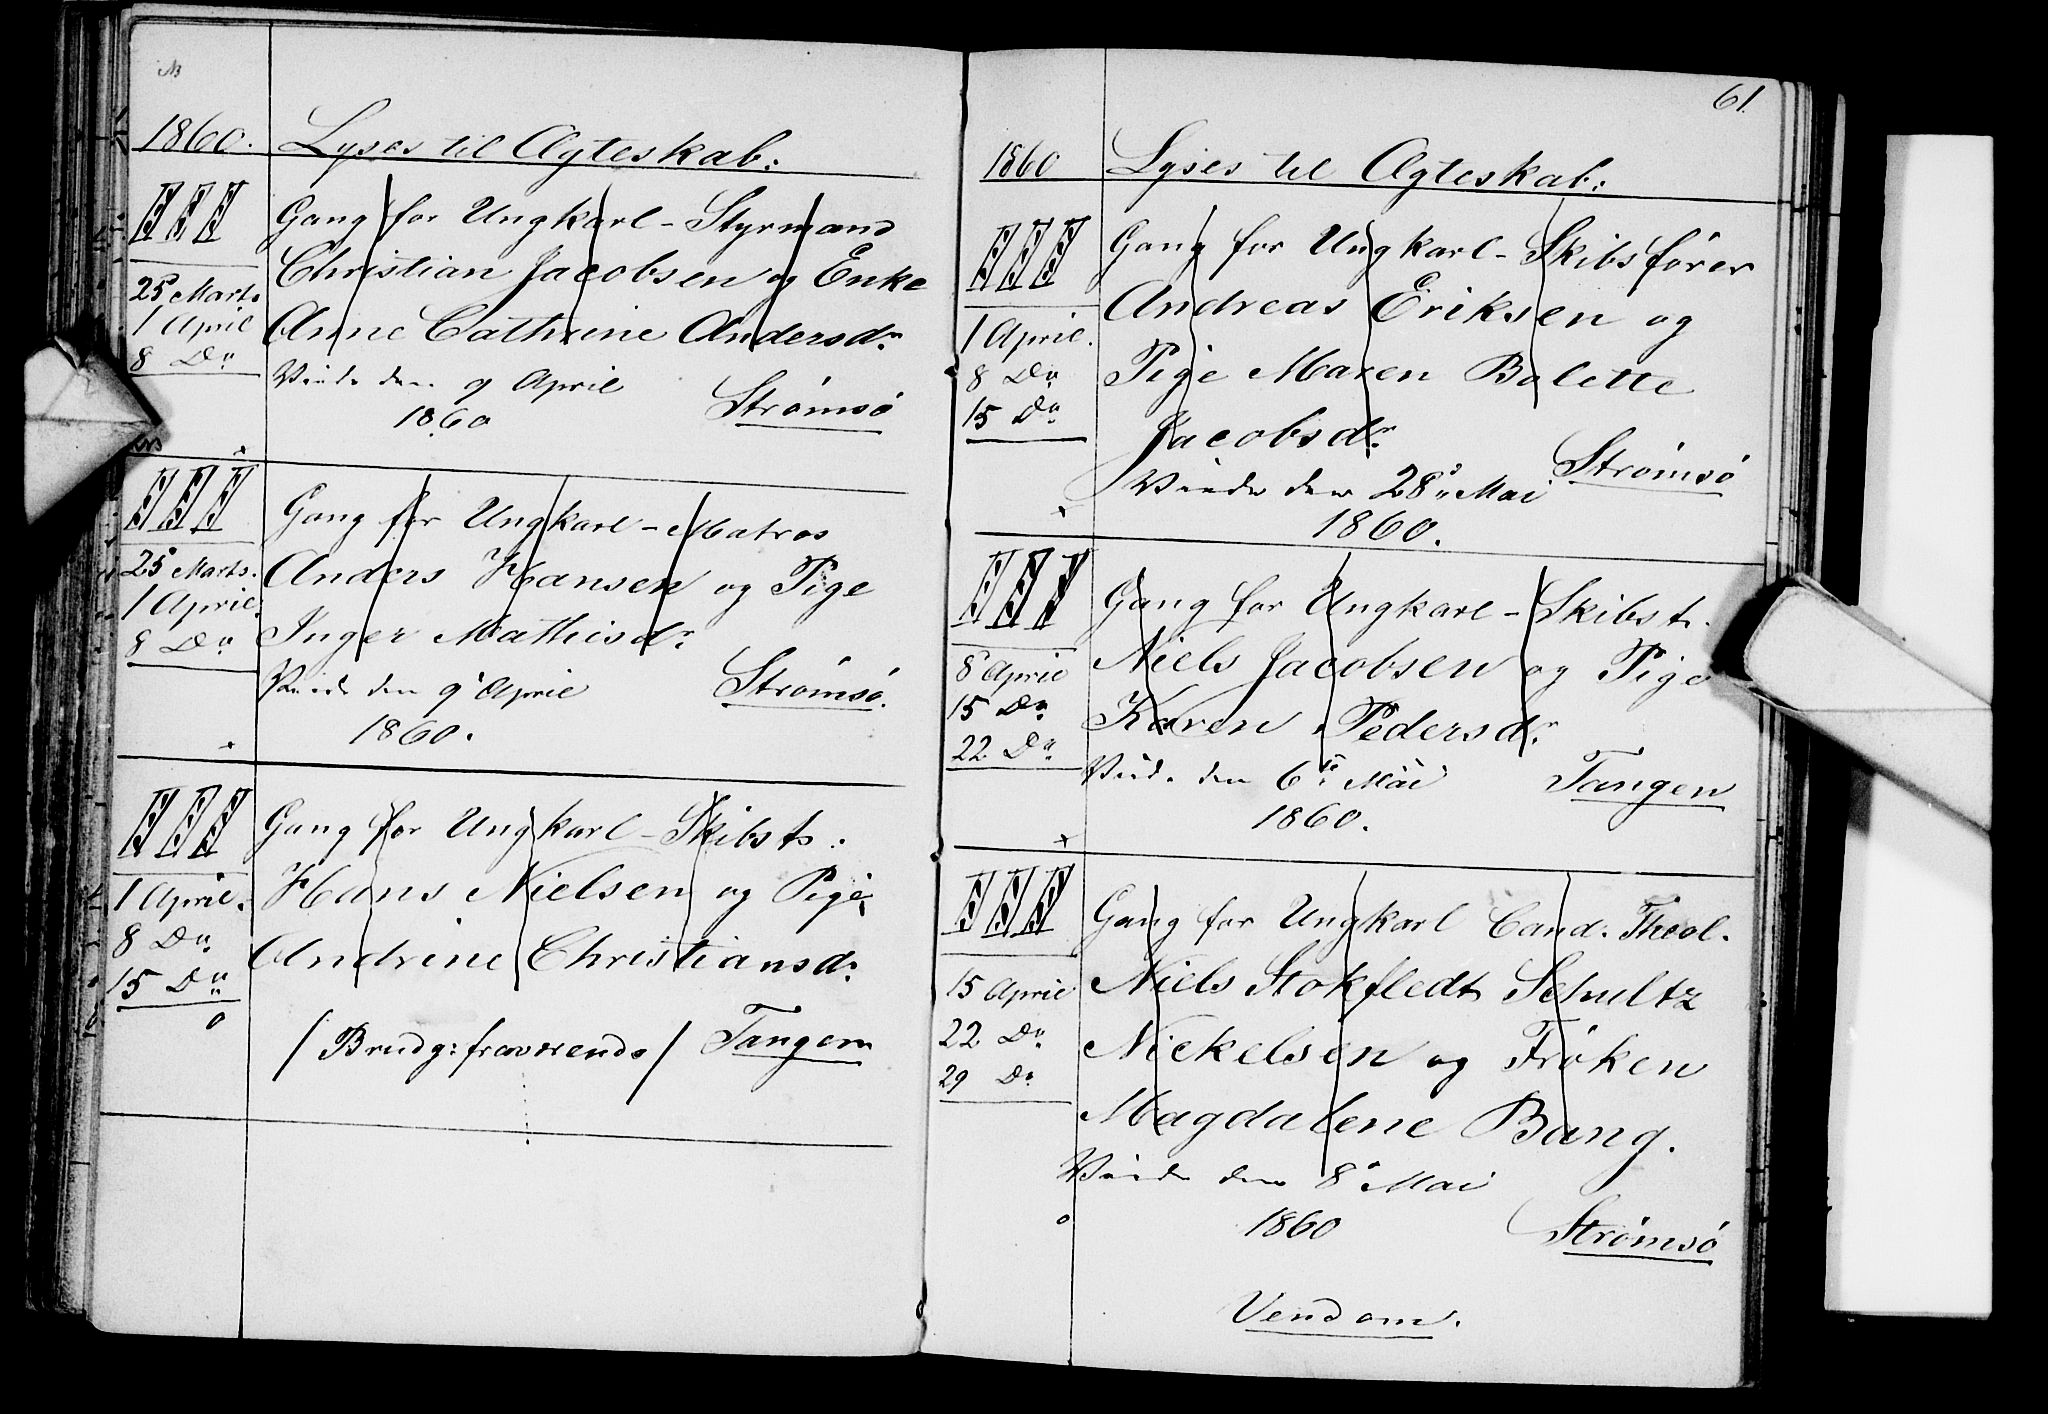 1860. Lyses til Ægteskab:
III Gang for Ungkarl - Styrmand
25 Marts Christian Jacobsen og Enke
1 April Anne Cathrine Andersdr.
8 Do Viede den 9 April Strømsø
1860
III Gang for Ungkarl - Matros
25 Marts. Anders Hansen og Pige
1 April. Inger Mathisdr.
8 Do Viede den 9 April Strømsø.
1860.
III Gang for Ungkarl - Skibst.
1 April. Hans Nielsen og Pige
8 Do Andrine Christiansdr.
15 Do
/ Brudg: fraværende / Tangen
61.
1860 Lyses til Ægteskab:
III Gang for Ungkarl - Skibsfører
Andreas Eriksen og
1 April.
8 Do Pige Maren Bolette
15 Do Jacobsdr.
Viede den 28 Mai Strømsø
1860.
III Gang for Ungkarl - Skibst.
8 April Niels Jacobsen og Pige
15 Do Karen Pedersdr.
22 Do Viede den 6te Mai Tangen
1860.
III Gang for Ungkarl Cand. Theol.
15 April Niels Stokfledt Schultz
22 Do Nickelsen og Frøken
29 Do Magdalene Bang.
Viede den 8 Mai
1860 Strømsø
Vend om.